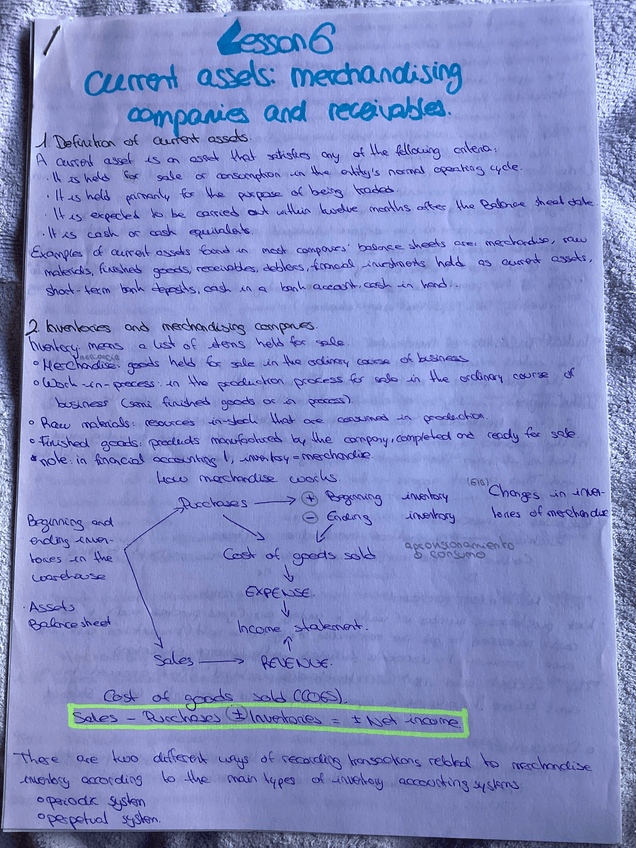 Lesson 6
Current assets: merchandising
companies and receivables.
1 Definition of current assets.
A current asset is an asset that satisfies any of the following criteria:
· It is held for sale or consumption in the entity's normal operating cycle.
· It is held primarily for the purpose of being traded.
· It is expected to be carried out within twelve months after the Balance sheet date
· It is cash or cash equivalents.
Examples of current assets found in most companies' balance sheets are: merchandise, raw
materials, finished goods, receivables, debtors, financial investments held as current assets,
short-term bank deposits, cash in a bank account, cash in hand...
2. Inventories and merchandising companies.
Inventory means a list of items held for sale.
mercancía
° Merchandise: goods held for sale in the ordinary course of business
° Work-in-process: in the production process for sale in the ordinary course of
business (semi finished goods or in process)
° Raw materials: resources in-stock that are consumed in production.
° Finished goods: products manufactured by the company, completed and ready for sale
* note: in financial accounting 1, inventory = merchandise
how merchandise works
Purchases → + Beginning inventory
(610)
Changes in inven-
- Ending inventory
tories of merchandise
Beginning and
ending inven-
tories in the
warehouse
Cost of goods sold
aprovisionamiento
o consumo
EXPENSE
· Assets
Balance sheet
Income statement.
Sales → REVENUE.
Cost of goods sold (COGS).
Sales - Purchases (±) Inventories = ± Net income
There are two different ways of recording transactions related to merchandise
inventory according to the main types of inventory accounting systems
° periodic system
° perpetual system.